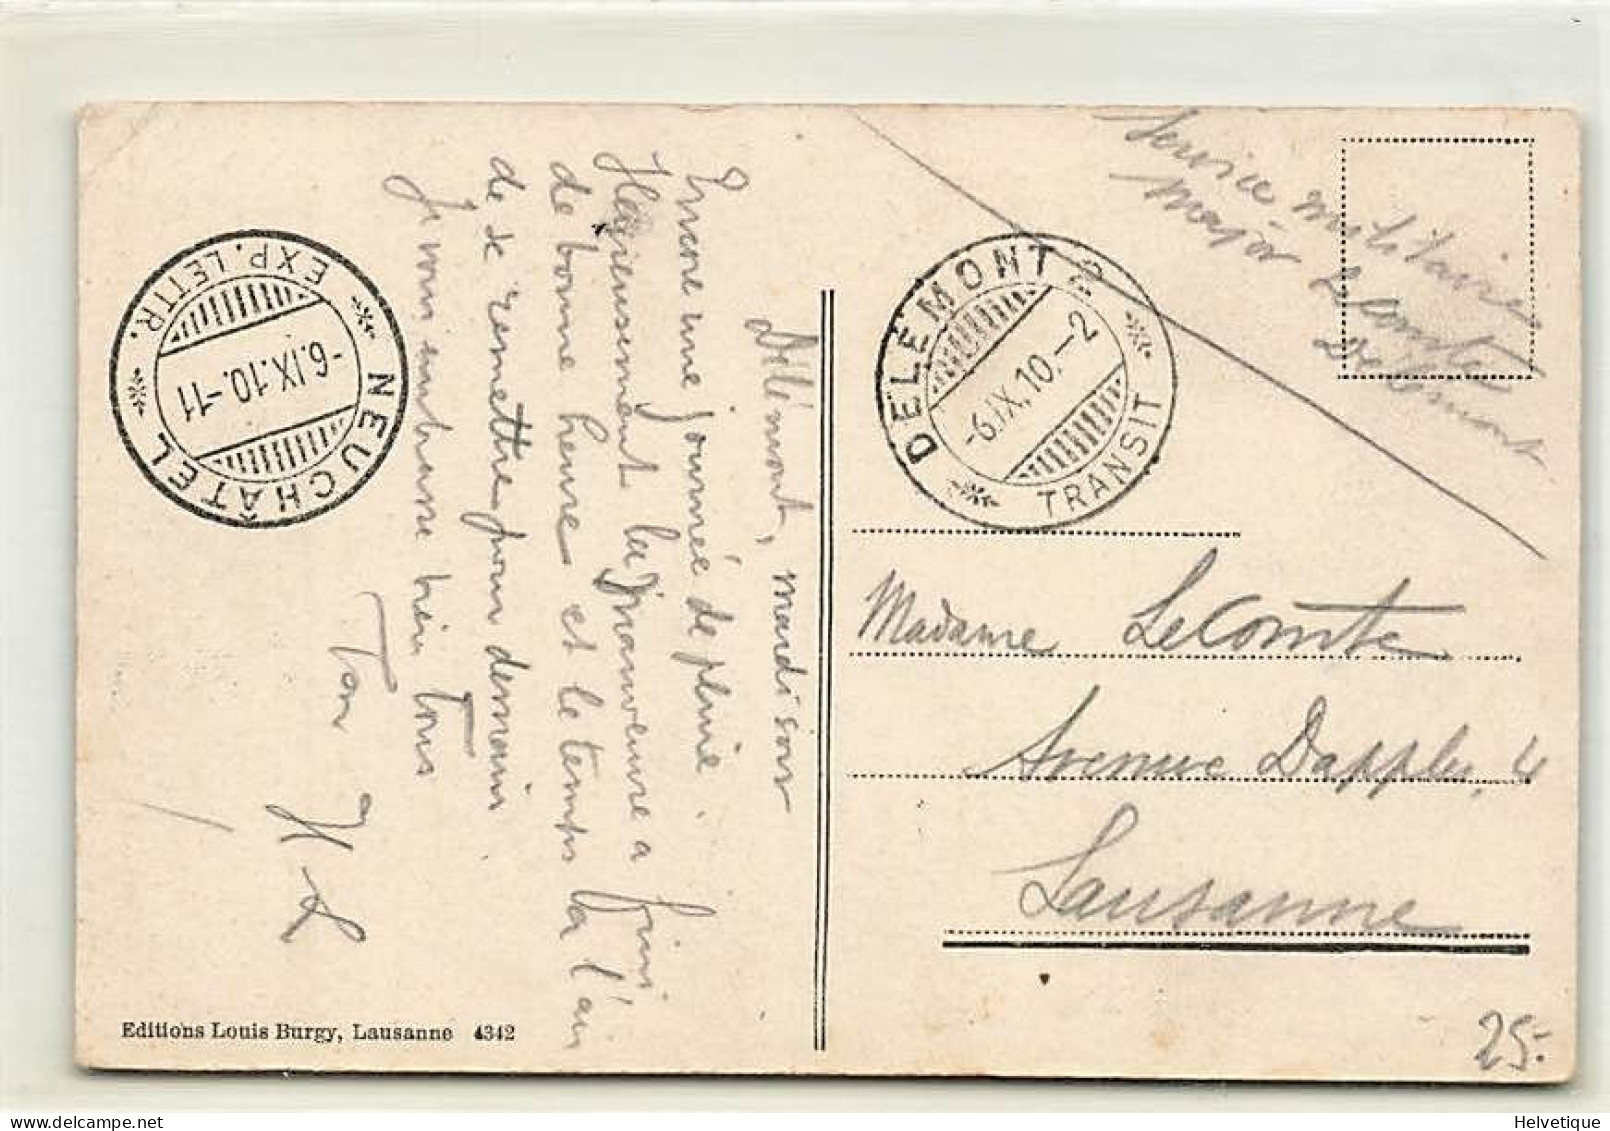 Délémont, mardi soir
Encore une journée de pluie.
Heureusement la manœuvre a fini
de bonne heure et le temps a l'air
de se remettre pour demain
Je vous embrasse bien tous
Ton
H L
NEUCHÂTEL
EXP. LETTR.
-6.IX.10.-11
Editions Louis Burgy, Lausanne 4342
Service militaire
Major LeComte
Delémont
DELÉMONT 2
-6.IX.10.-2
TRANSIT
Madame LeComte
Avenue Dapples, 4
Lausanne
25.-
Helvetique